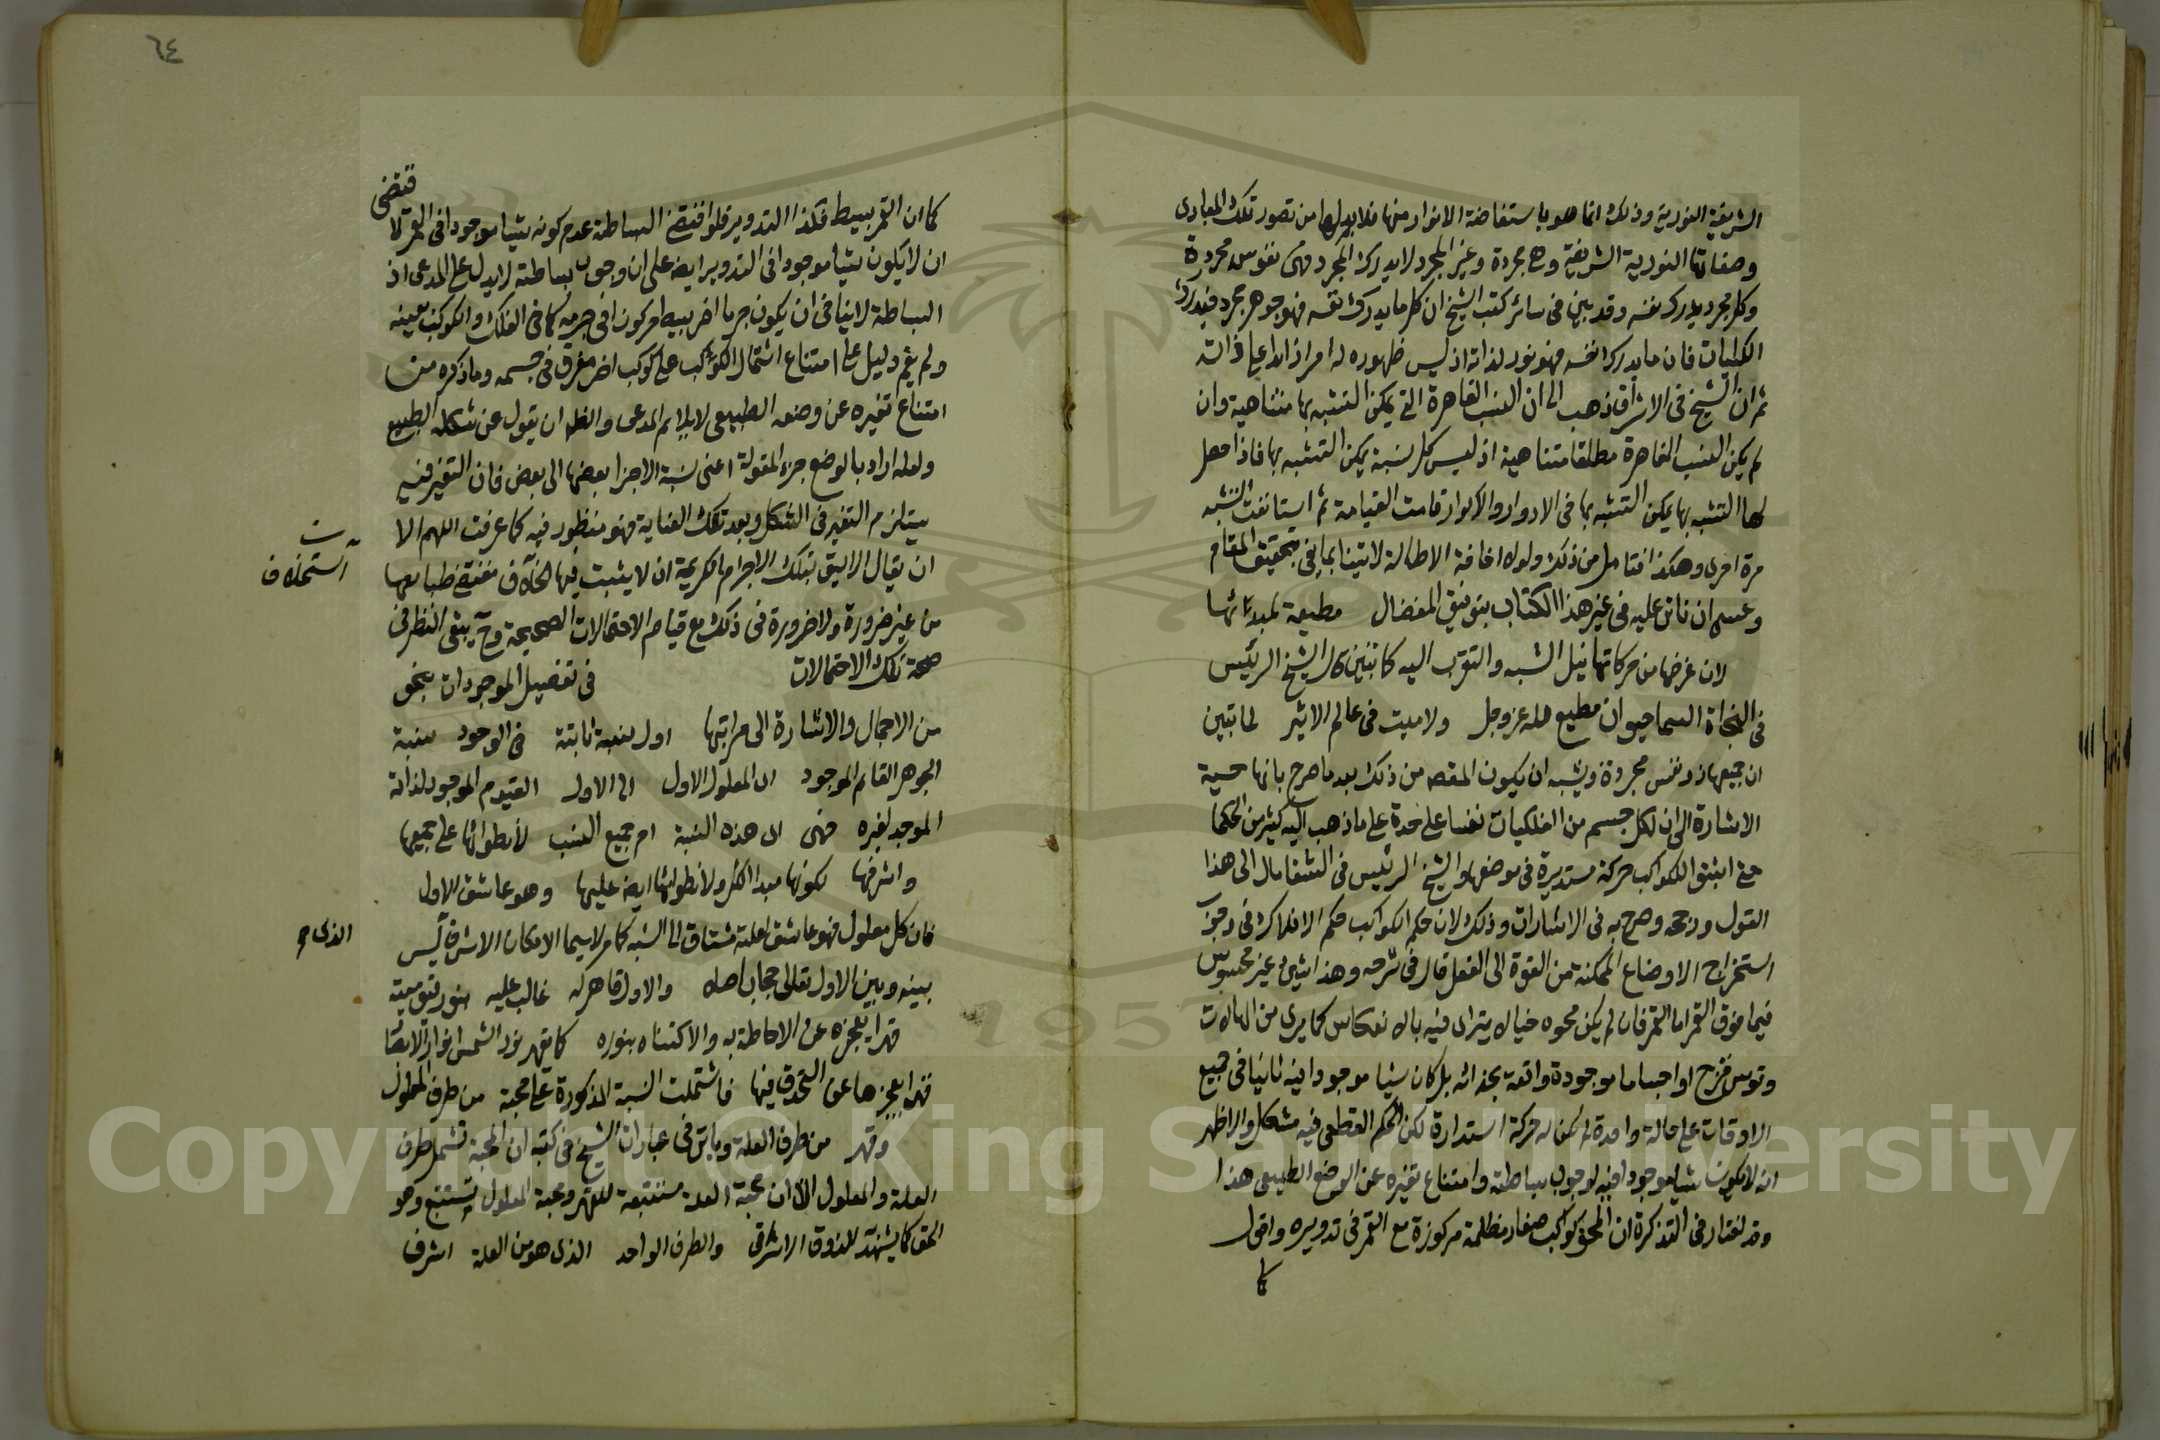 الشريفة النورية وذلك انما هو باستفاضة الانوار منها فلا بد لها من تصور تلك المبادى
وصفاتها النورية الشريفة وهى مجردة وغير المجرد لا يدرك المجرد فهى نفوس مجردة
وكل مجرد يدرك نفسه وقد بين فى سائر كتب الشيخ ان كل ما يدرك نفسه فهو جوهر مجرد فيدرك
الكليات فان ما يدرك نفسه فهو نور لذاته اذ ليس ظهوره له امرا زائدا على ذاته
ثم ان الشيخ فى الاشراق ذهب الى ان النسب القاهرة التى يمكن التشبه بها متناهية وان
لم يكن النسب القاهرة مطلقا متناهية اذ ليس كل نسبة يمكن التشبه بها فاذا حصل
لها التشبه بما يمكن التشبه بها فى الادوار والاكوار قامت القيامة ثم استانفت التشبه
مرة اخرى وهكذا فتامل من ذلك ولولا مخافة الاطالة لاتينا بما يفى بتحقيق المقام
وعسى ان ناتى عليه فى غير هذا الكتاب بتوفيق المفضال مطيعة لمبدائها
لان غرضها من حركاتها نيل الشبه والتقرب اليه كما تبين قال الشيخ الرئيس
فى النجاة السما حيوان مطيع لله عز وجل ولا ميت فى عالم الاثير لما تبين
ان جميعها ذو نفس مجردة ويشبه ان يكون المقصد من ذلك بعد ما صرح بانها حسية
الاشارة الى ان لكل جسم من الفلكيات نفسا على حدة على ما ذهب اليه كثير من الحكما
حتى اثبتوا للكواكب حركة مستديرة فى موضعها والشيخ الرئيس فى الشفا مال الى هذا
القول ورجحه وصرح به فى الاشارات وذلك لان حكم الكواكب حكم الافلاك فى وجوب
استخراج الاوضاع الممكنة من القوة الى الفعل قال فى شرحه وهذا شئ غير محسوس
فيما فوق القمر اما القمر فان لم يكن محوه خيالا يترائ فيه بالانعكاس كما يرى من الهالات
وقوس قزح او اجساما موجودة واقعة بحذائه بل كان شيئا موجودا فيه ثابتا فى جميع
الاوقات على حالة واحدة لم يكن له حركة استدارة لكن الحكم القطعى فيه مشكل والاظهر
انه لا يكون شيئا موجودا فيه لوجوب بساطته وامتناع تغيره عن الوضع الطبيعى هذا
وقد اختار فى التذكرة ان المحو كواكب صغار مظلمة مركوزة مع القمر فى تدويره واقول
كا
٦٤
كما ان القمر بسيط فكذا التدوير فلو اقتضى البساطة عدم كونه شيئا موجودا فى القمر لا
قتضى
ان لا يكون شيئا موجودا فى التدوير ايضا على ان وجوب بساطته لا يدل على المدعى اذ
البساطة لا ينافى ان يكون جرما اخر بسيط مركوزا فى جرمه كما فى الفلك والكوكب بعينه
ولم يقم دليل على امتناع اشتمال الكواكب على كوكب اخر مغرق فى جسمه وما ذكره من
امتناع تغيره عن وضعه الطبيعى لا يلايم المدعى والظاهر ان يقول عن شكله الطبيعى
ولعله اراد بالوضع جزء المقولة اعنى نسبة الاجزا بعضها الى بعض فان التغير فيه
يستلزم التغير فى الشكل وبعد تلك العناية فهو منظور فيه كما عرفت اللهم الا
ان يقال الاليق بتلك الاجرام الكريمة ان لا يثبت فيها خلاف مقتضى طباعها
من غير ضرورة ولا ضرورة فى ذلك مع قيام الاحتمالات الصحيحة وح يبقى النظر فى
صحة تلك الاحتمالات فى تفصيل الموجودات بنحو
من الاجمال والاشارة الى مراتبها اول نسبة ثابتة فى الوجود نسبة
الجوهر القائم الموجود اى المعلول الاول الى الاول القيوم الموجود لذاته
الموجد لغيره فهى اى هذه النسبة ام جميع النسب لانطوائها على جميعها
واشرفها لكونها مبدا الكل ولانطوائها ايضا عليها وهو عاشق الاول
فان كل معلول فهو عاشق لعلته مشتاق الى الشبه كما مر لا سيما الامكان الاشرف ليس
بينه وبين الاول تعالى حجاب اصلا والاول قاهر له غالب عليه بنور قيوميته
قهرا يعجزه عن الاحاطة به والاكتناه بنوره كما يقهر نور الشمس انوار الابصار
قهرا يعجزها عن التحدق فيها فاشتملت النسبة المذكورة على محبة من طرف المعلول
وقهر من طرف العلة وياتى فى عبارات الشيخ فى كتبه ان المحبة تشمل طرفى
العلة والمعلول الا ان محبة العلة مستتبعة للقهر ومحبة المعلول يستتبع وهو
الحق كما يشهد له الذوق الاشراقى والطرف الواحد الذى هو من العلة اشرف
الذى